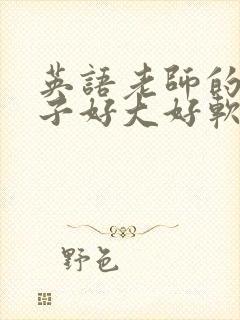 英語老師的
子好大好軟
野色